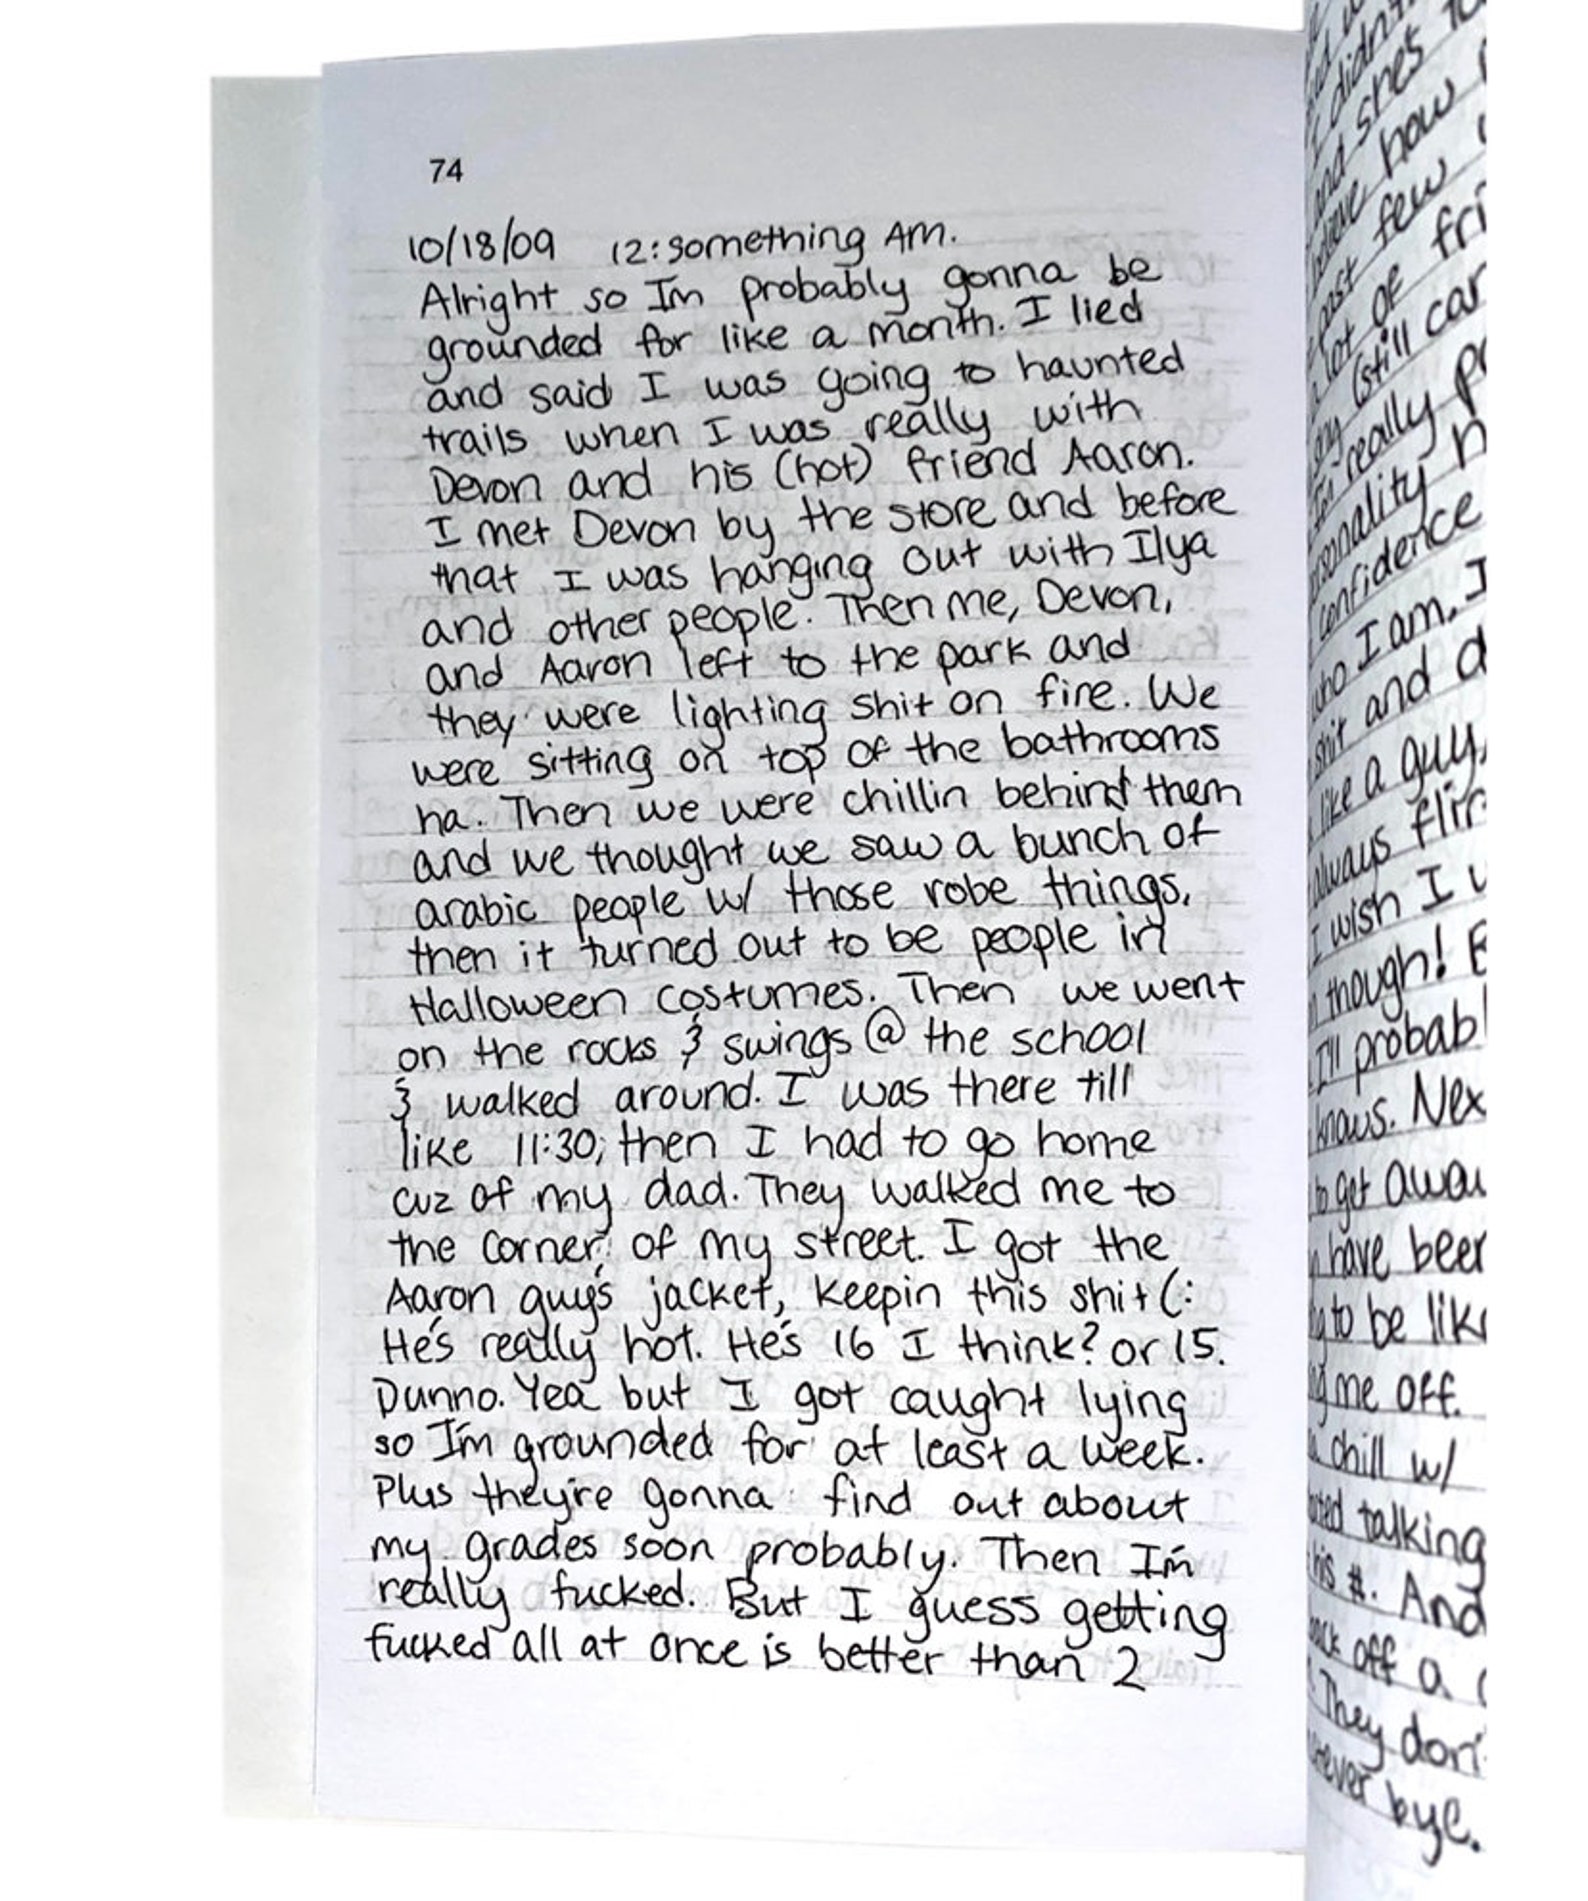 74
10/18/09 12:something AM.
Alright so I'm probably gonna be
grounded for like a month. I lied
and said I was going to haunted
trails when I was really with
Devon and his (hot) friend Aaron.
I met Devon by the store and before
that I was hanging out with Ilya
and other people. Then me, Devon,
and Aaron left to the park and
they were lighting shit on fire. We
were sitting on top of the bathrooms
ha. Then we were chillin behind them
and we thought we saw a bunch of
arabic people w/ those robe things,
then it turned out to be people in
Halloween costumes. Then we went
on the rocks & swings @ the school
& walked around. I was there till
like 11:30, then I had to go home
cuz of my dad. They walked me to
the corner of my street. I got the
Aaron guy's jacket, keepin this shit (:
He's really hot. He's 16 I think? or 15.
Dunno. Yea but I got caught lying
so I'm grounded for at least a week.
Plus they're gonna find out about
my grades soon probably. Then I'm
really fucked. But I guess getting
fucked all at once is better than 2
and shes
how
few
lot of
(still
really
personality
confidence
who I am. I
shit and
like a guy,
always
I wish I
though!
I'll
knows.
to get
have
to be
me off.
chill w/
talking
his #. And
off a
They
bye.